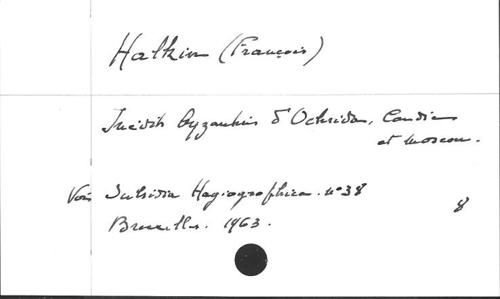 Halkin (François)
Inédits byzantins d'Ochrida, Candie
et Moscou.
Voir Subsidia Hagiographica. n° 38
8
Bruxelles. 1963.